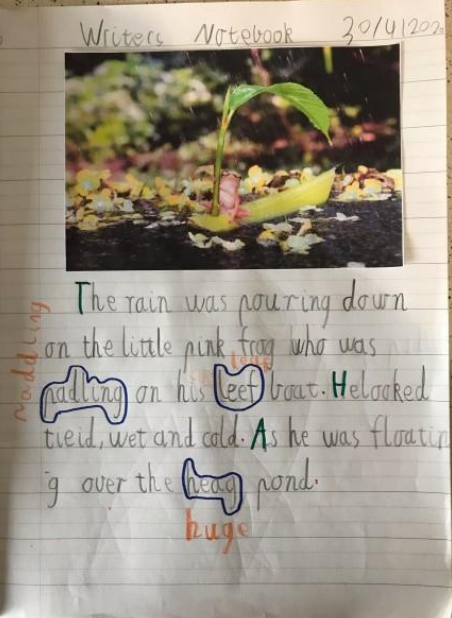 Writers Notebook 30/4/202
The rain was pouring down
on the little pink frog who was
leaf
padling on his leef boat. He looked
tieid, wet and cold. As he was floatin
g over the heag pond.
huge
paddling